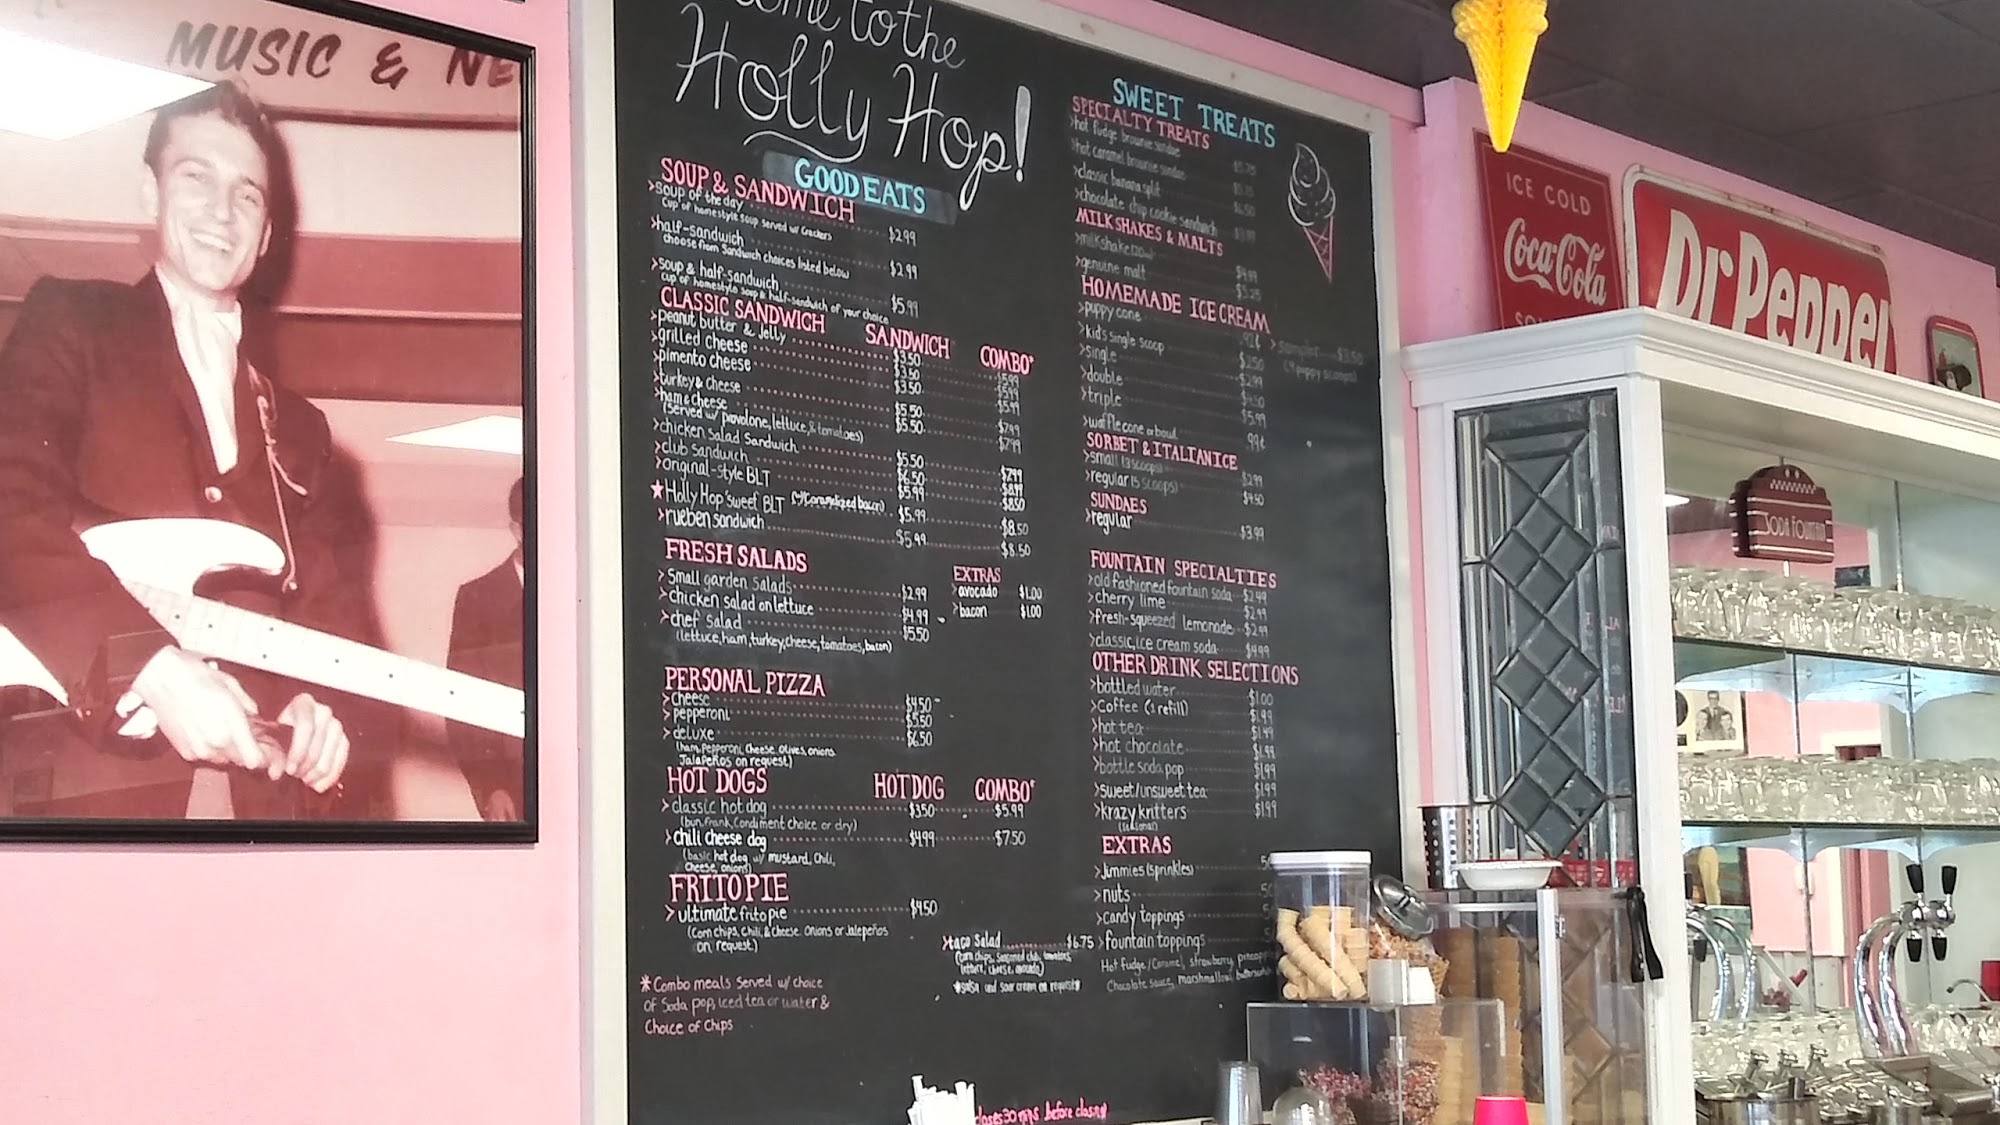 MUSIC & NE
to the
Holly Hop!
GOOD EATS
SOUP & SANDWICH
>soup of the day $2.99
Cup of homestyle soup served w/ crackers
>half-sandwich $2.99
choose from sandwich choices listed below
>soup & half-sandwich $5.99
cup of homestyle soup & half-sandwich of your choice
CLASSIC SANDWICH SANDWICH COMBO*
>peanut butter & jelly $3.50 $5.99
>grilled cheese $3.50 $5.99
>pimento cheese $3.50 $5.99
>turkey & cheese $5.50 $7.99
>ham & cheese $5.50 $7.99
(served w/ provolone, lettuce, & tomatoes)
>chicken salad sandwich $5.50 $7.99
>club sandwich $6.50 $8.99
>original-style BLT $5.99 $8.50
*Holly Hop 'sweet' BLT (w/caramelized bacon) $5.99 $8.50
>rueben sandwich $5.99 $8.50
FRESH SALADS
>small garden salads $2.99
>chicken salad on lettuce $4.99
>chef salad $5.50
(lettuce, ham, turkey, cheese, tomatoes, bacon)
EXTRAS
>avocado $1.00
>bacon $1.00
PERSONAL PIZZA
>cheese $4.50
>pepperoni $5.50
>deluxe $6.50
(ham, pepperoni, cheese, olives, onions.
Jalapeños on request)
HOT DOGS HOT DOG COMBO*
>classic hot dog $3.50 $5.99
(bun, frank, condiment choice or dry)
>chili cheese dog $4.99 $7.50
(basic hot dog w/ mustard, chili,
cheese, onions)
FRITO PIE
>ultimate frito pie $4.50
(corn chips, chili, & cheese. Onions or jalepeños
on request.)
>taco salad $6.75
(corn chips, seasoned chili, tomatoes,
lettuce, cheese, avocado)
*salsa and sour cream on request*
*Combo meals served w/ choice
of Soda pop, iced tea or water &
Choice of Chips
closes 30 mins before closing
SWEET TREATS
SPECIALTY TREATS
>hot fudge brownie sundae
>hot caramel brownie sundae
>classic banana split $6.50
>chocolate chip cookie sandwich
MILKSHAKES & MALTS
>milkshake $4.99
>genuine malt $5.25
HOMEMADE ICE CREAM
>puppy cone
>sampler $3.50
(4 puppy scoops)
>kid's single scoop $2.50
>single $2.99
>double $4.50
>triple $5.99
>waffle cone or bowl 99¢
SORBET & ITALIAN ICE
>small (3 scoops) $2.99
>regular (5 scoops) $4.50
SUNDAES
>regular $3.99
FOUNTAIN SPECIALTIES
>old fashioned fountain soda $2.99
>cherry lime $2.99
>fresh-squeezed lemonade $2.99
>classic ice cream soda $4.99
OTHER DRINK SELECTIONS
>bottled water $1.00
>coffee (1 refill) $1.99
>hot tea $1.49
>hot chocolate $1.99
>bottle soda pop $1.99
>sweet/unsweet tea $1.99
>krazy kritters $1.99
EXTRAS
>jimmies (sprinkles) 5
>nuts 5
>candy toppings 5
>fountain toppings 5
Hot fudge/Caramel, strawberry, pineapple
Chocolate sauce, marshmallow,
ICE COLD
Coca-Cola
Dr Pepper
SODA FOUNTAIN